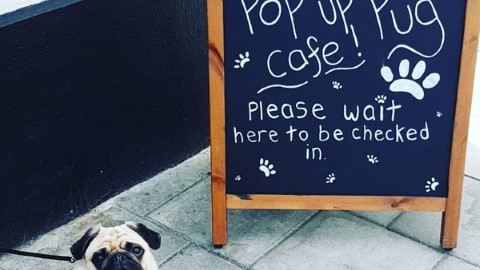 Pop up Pug
cafe!
Please wait
here to be checked
in.